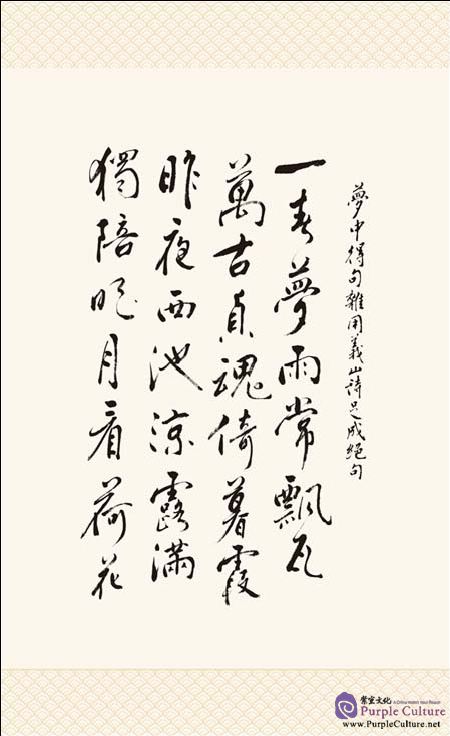 夢中得句雜用義山詩足成絕句
一春夢雨常飄瓦
萬古貞魂倚暮霞
昨夜西池涼露滿
獨陪明月看荷花
紫宸文化
A China Watch Your Report
Purple Culture
www.PurpleCulture.net